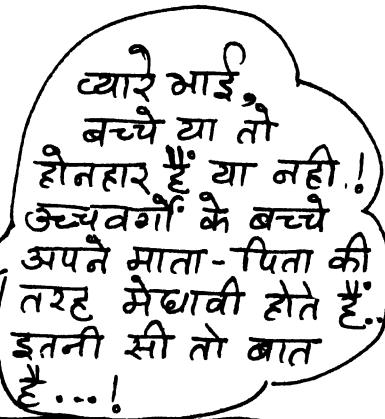 प्यारे भाई,
बच्चे या तो
होनहार हैं या नही.!
उच्चवर्गों के बच्चे
अपने माता-पिता की
तरह मेधावी होते हैं..
इतनी सी तो बात
है...!